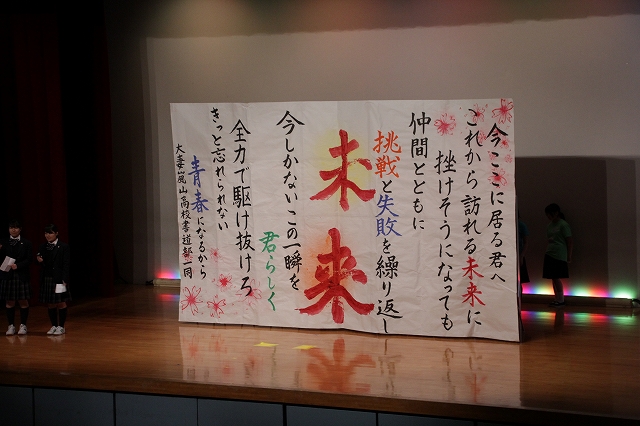 今ここに居る君へ
これから訪れる未来に
挫けそうになっても
仲間とともに
挑戦と失敗を繰り返し
未来
今しかないこの一瞬を
君らしく
全力で駆け抜けろ
きっと忘れられない
青春になるから
大妻嵐山高校書道部一同